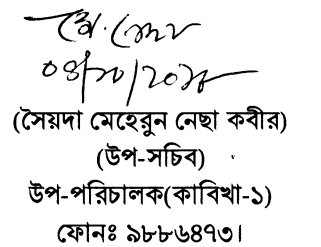 ০৪/১০/২০১৮
(সৈয়দা মেহেরুন নেছা কবীর)
(উপ-সচিব)
উপ-পরিচালক(কাবিখা-১)
ফোনঃ ৯৮৮৬৪৭৩।